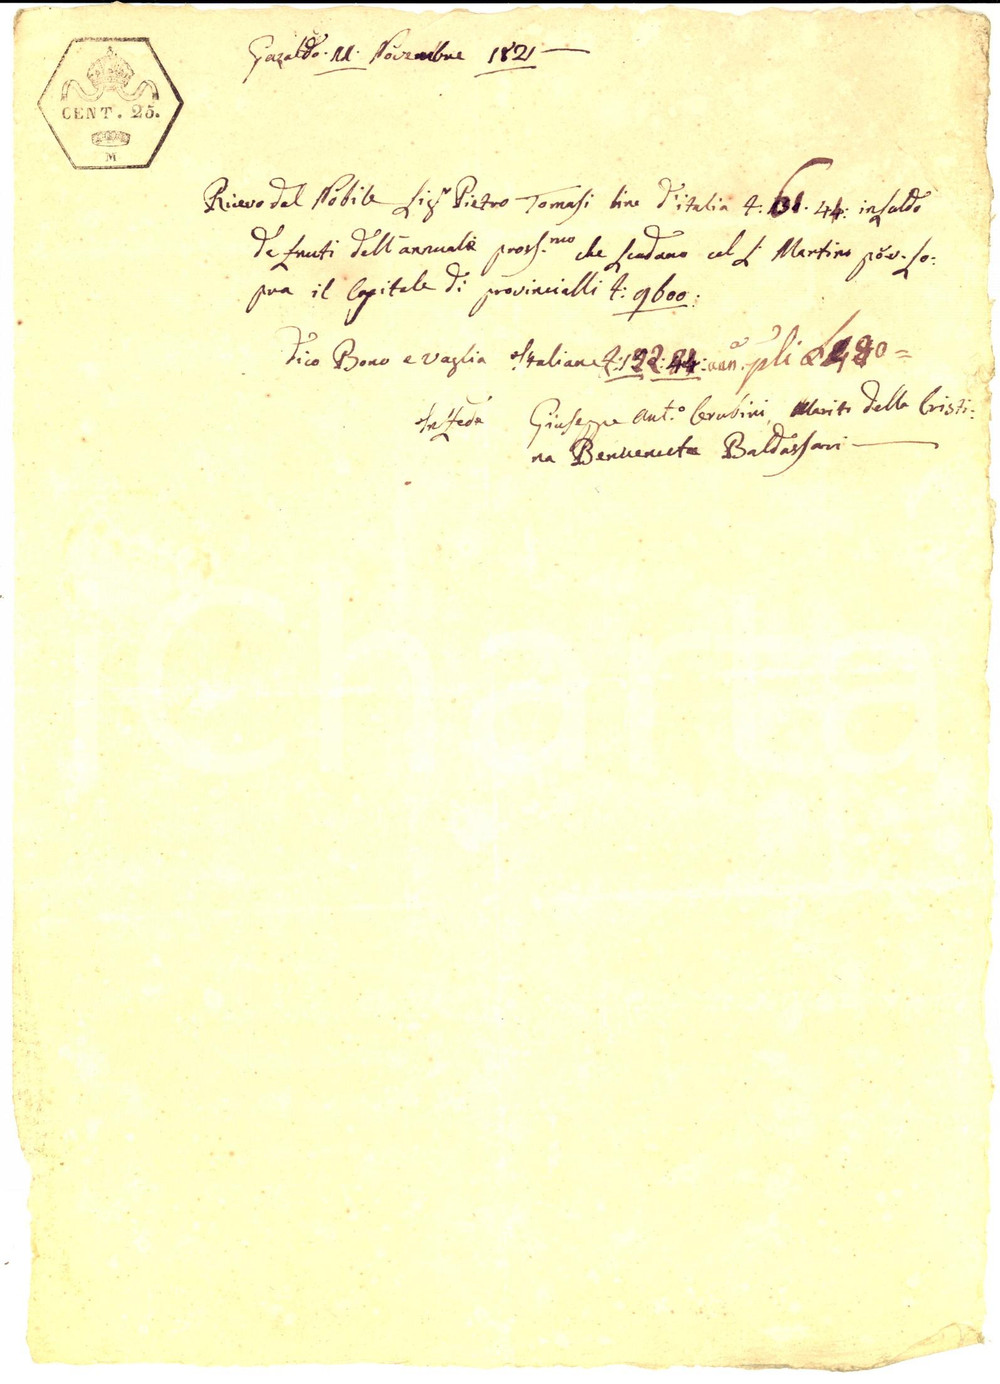 CENT. 25.
M
Gazoldo. 11. Novembre 1821
Ricevo dal Nobile Sigr Pietro Tomasi lire d'italia £: 44: in saldo
de frutti dell'annualè pross.mo che scadano al S Martino so:
pra il Capitale di provincialli £: 9600:
Dico Bono e vaglia Italiane £: 44:
In Fede Giuseppe Ant.o Cerubini, Marito della Cristi:
na Benvenuta Baldassari
iCharta